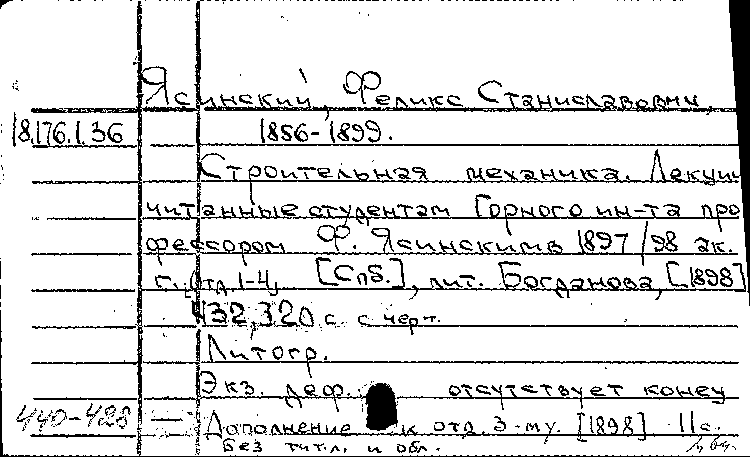 Ясинский, Феликс Станиславович,
18.176.1.36 1856-1899.
Строительная механика. Лекции
читанные студентам Горного ин-та про
фессором Ф. Ясинским в 1897/98 ак.
г. Отд. 1-4, [Спб.], лит. Богданова, [1898]
432,320 с. с черт.
Литогр.
Экз. деф. отсутствует конец
440-428 — Дополнение к отд. 3-му. [1898] 11с.
Без тит.л. и обл.